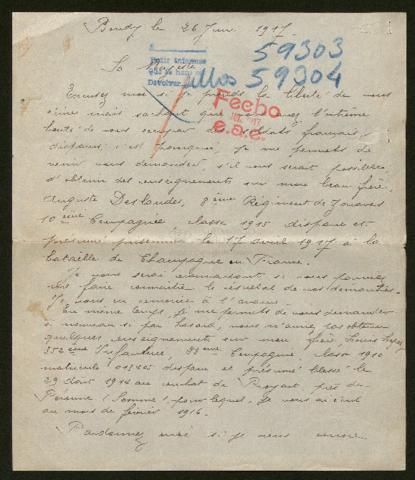 Bondy le 26 Juin 1917
59303
59304
Sa Majesté
Fecho
e.a.e.
Devolver
Excusez moi si je prends la liberté de vous
écrire mais sachant que vous avez l'extrême
bonté de vous occuper des soldats français
disparus, c'est pourquoi je me permets de
venir vous demander, s'il vous serait possible
d'obtenir des renseignements sur mon beau frère
Auguste Deslandes, 8ème Régiment de Zouaves
10ème Compagnie, classe 1915 disparu et
présumé prisonnier le 17 avril 1917 à la
bataille de Champagne en France.
Je vous serai reconnaissant si vous pouvez
me faire connaître le résultat de vos démarches.
Je vous en remercie à l'avance.
En même temps, je me permets de vous demander
à nouveau si par hasard, vous n'auriez pas obtenu
quelques renseignements sur mon frère, Louis
352ème Infanterie, compagnie, classe 1910
matricule disparu et présumé blessé le
29 août 1914 au combat de Proyart, près de
Péronne (Somme) pour lequel je vous ai écrit
au mois de février 1916.
Pardonnez moi si je vous